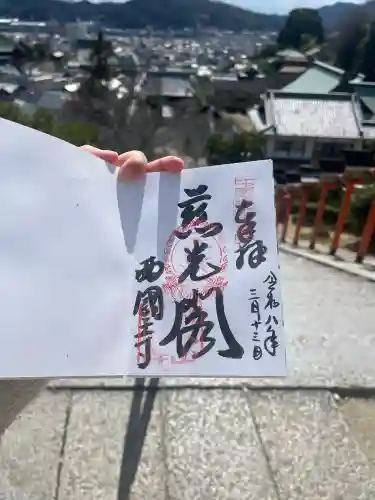 奉拝
令和八年
三月十三日
慈光閣
西國寺